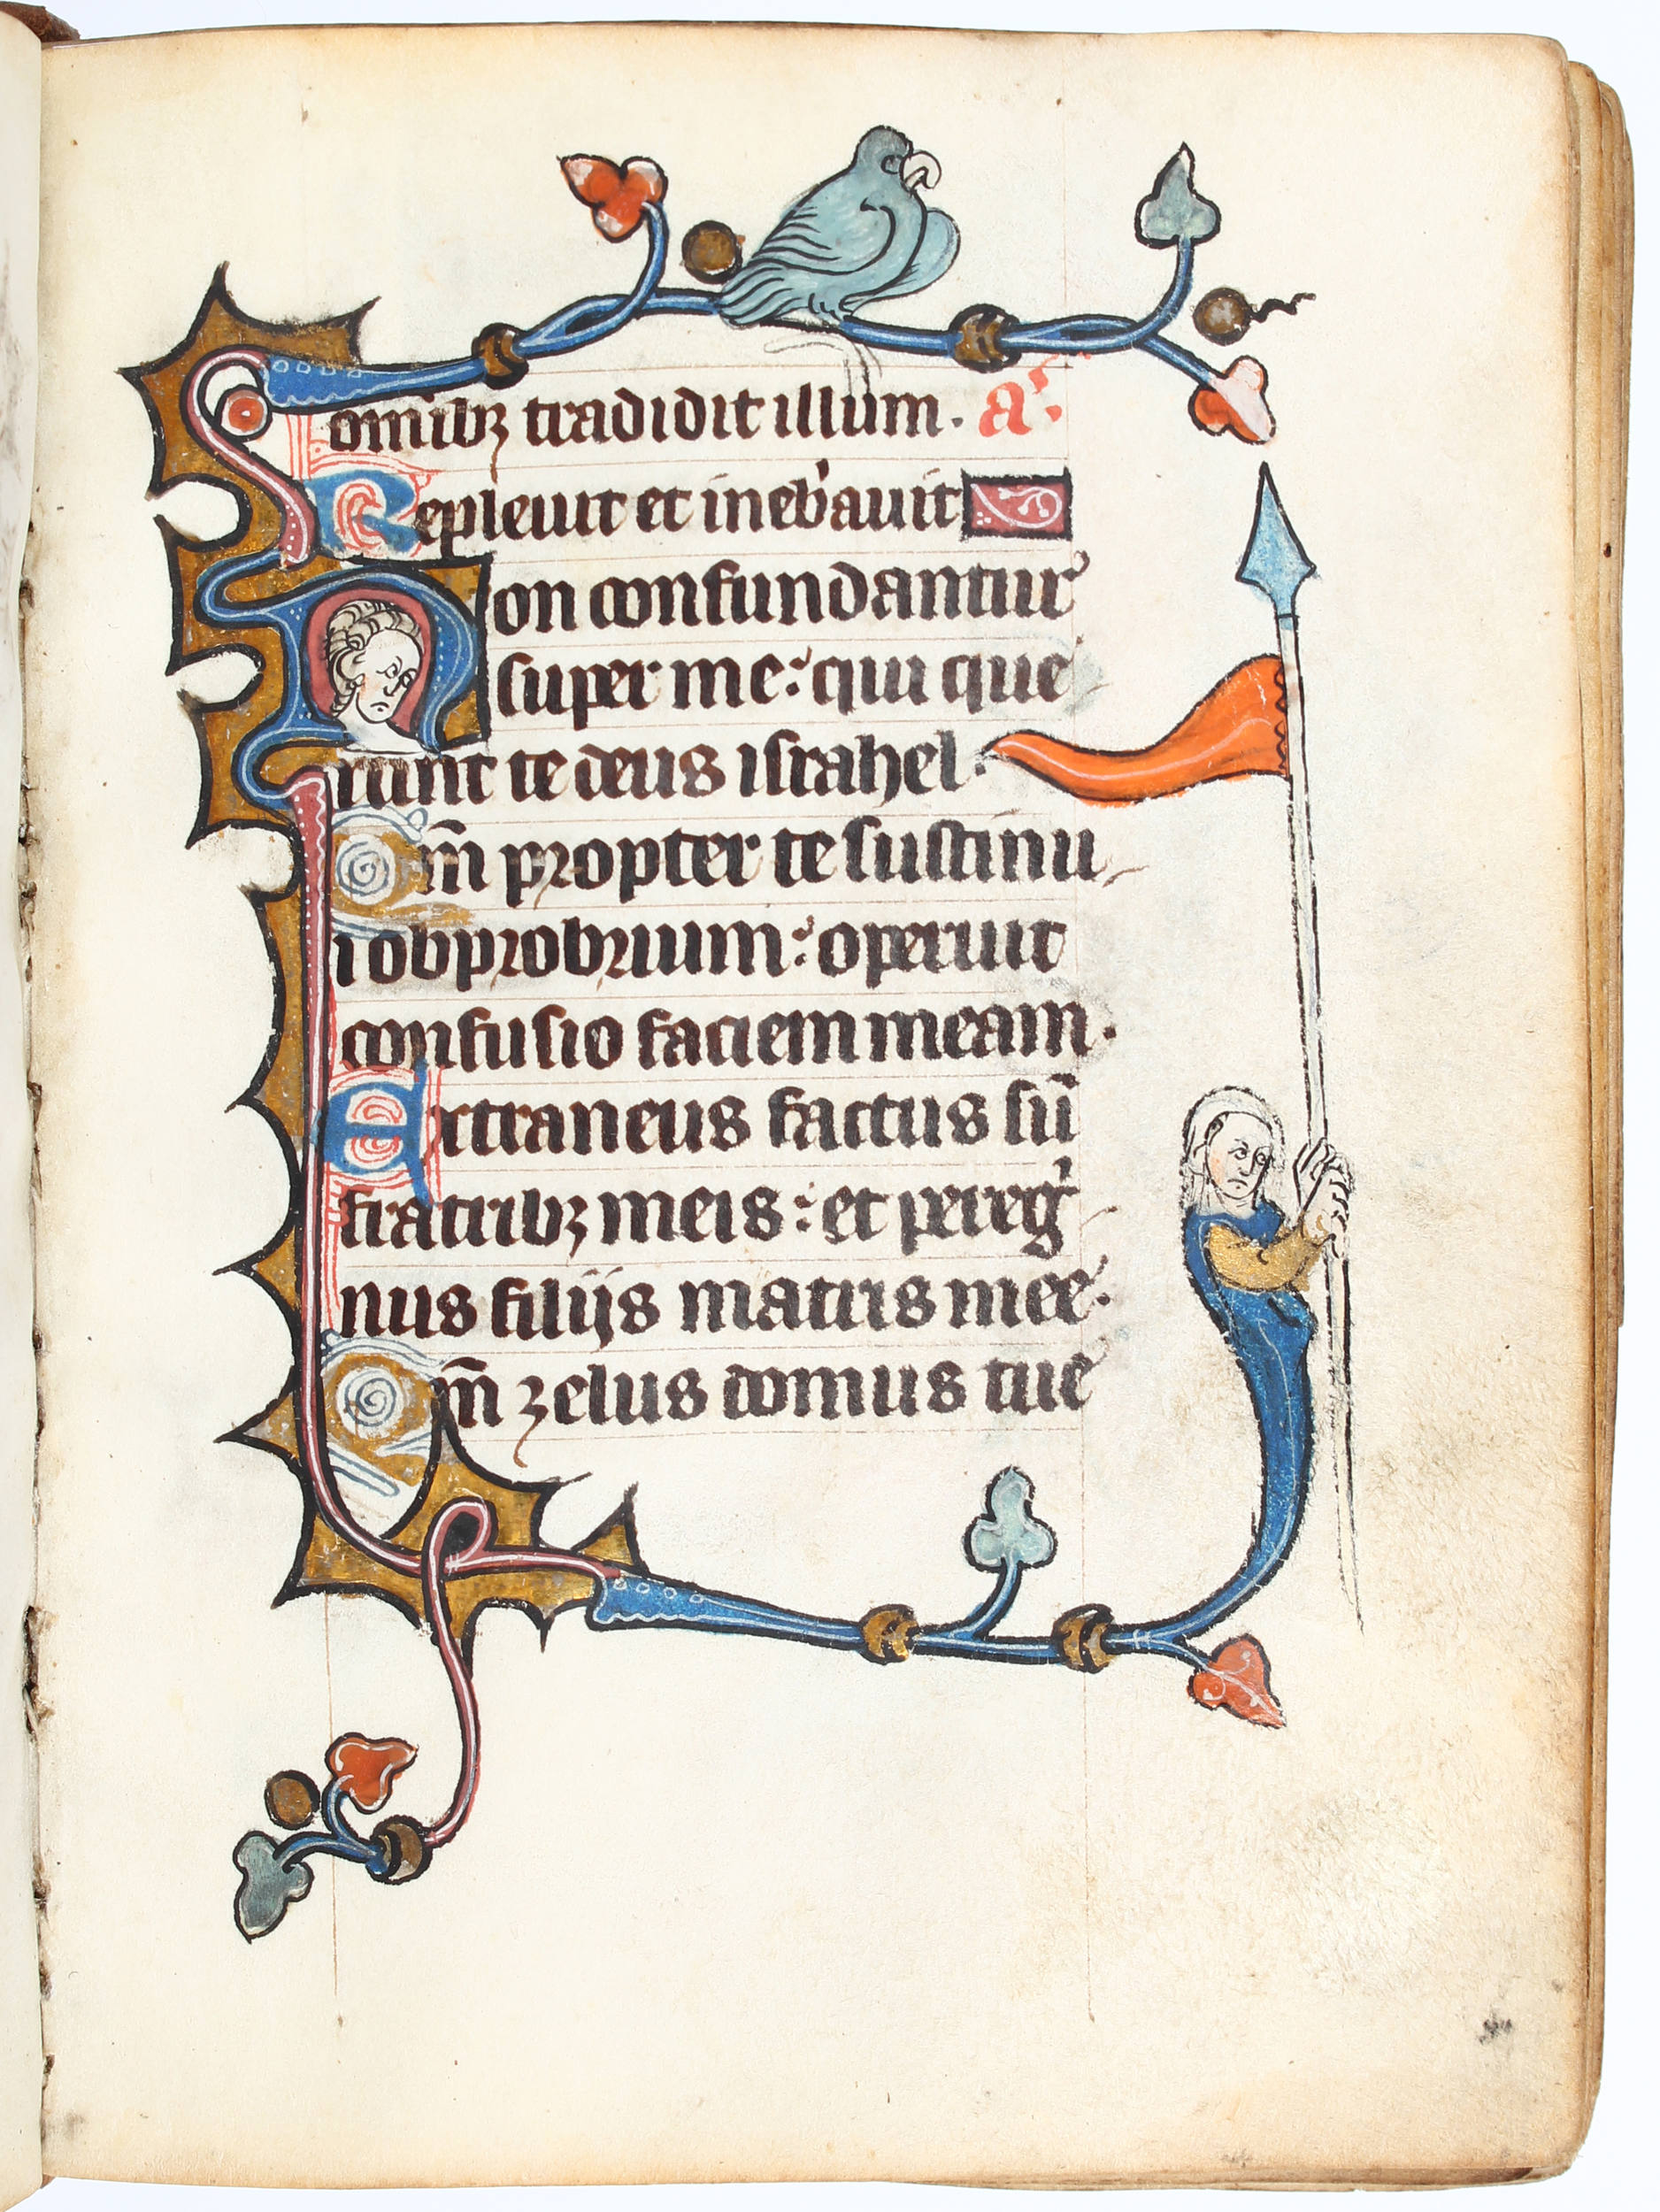 om̄ibꝫ tradidit illum. a᷒.
Repleuit et ineb'auit
Non confundantur
super me: qui que-
runt te deus israhel.
Qm̄ propter te sustinu-
i obprobrium: operuit
confusio faciem meam.
Extraneus factus sū
fratribꝫ meis: et pereg'-
nus filijs matris mee.
Qm̄ zelus domus tue